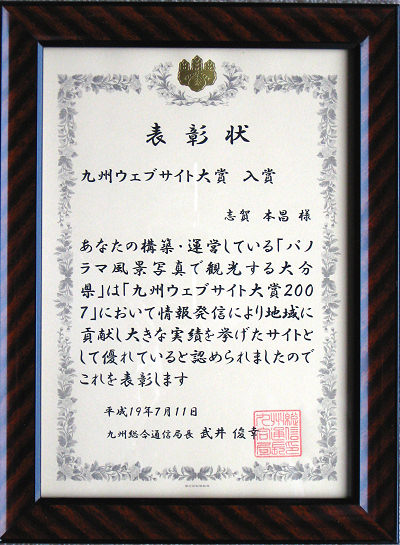 表彰状
九州ウェブサイト大賞 入賞
志賀 本昌 様
あなたの構築・運営している「パノ
ラマ風景写真で観光する大分
県」は「九州ウェブサイト大賞200
7」において情報発信により地域に
貢献し大きな実績を挙げたサイトと
して優れていると認められましたので
これを表彰します
平成19年7月11日
九州総合通信局長 武井 俊幸